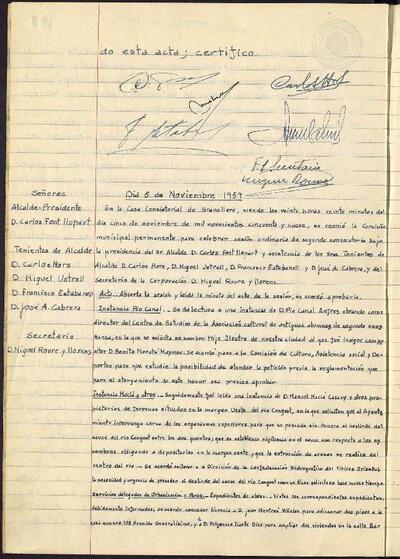 do esta acta; certifico.
Carlos Font
P. El Secretario
Miguel Roure
Señores
Día 5 de Noviembre 1959
Alcalde-Presidente
D. Carlos Font Llopart
Tenientes de Alcalde
D. Carlos Hors
D. Miguel Ustrell
D. Francisco Estabanell
D. José A. Cabrera
Secretario
D. Miguel Roure y Llorens
En la Casa Consistorial de Granollers, siendo las veinte horas veinte minutos del
día cinco de noviembre de mil novecientos cincuenta y nueve, se reunió la Comisión
municipal permanente para celebrar sesión ordinaria de segunda convocatoria bajo
la presidencia del Sr. Alcalde D. Carlos Font Llopart y asistencia de los Sres. Tenientes de
Alcalde D. Carlos Hors, D. Miguel Ustrell, D. Francisco Estabanell y D. José A. Cabrera, y del
Secretario de la Corporación D. Miguel Roure y Llorens.
Acta. Abierta la sesión y leída la minuta del acta de la sesión, se acordó aprobarla.
Instancia Pío Canal. Se da lectura a una instancia de D. Pío Canal obrando como
director del Centro de Estudios de la Asociación cultural de antiguos alumnos de segunda ense-
ñanza, en la que solicita se nombre Hijo Ilustre de nuestra ciudad al que fué insigne compo-
sitor D. Benito Morató Maynou. Se acordó pase a la Comisión de Cultura, Asistencia social y De-
portes, para que estudie la posibilidad de atender la petición previa la reglamentación que
para el otorgamiento de este honor sea preciso aprobar.
Instancia Maciá y otros. Seguidamente fué leída una instancia de D. Manuel Maciá y otros pro-
pietarios de terrenos situados en la margen Oeste del río Congost, en la que solicitan que el Ayunta-
miento interceda cerca de los organismos superiores para que se proceda sin demora al deslinde del
cauce del río Congost entre los dos puentes; que se establezca vigilancia en el cauce con respecto a los es-
combros, obligando a depositarlos en la margen oeste, y que la extracción de arenas se realice del
centro del río. Se acordó reiterar a la Dirección de la Confederación Hidrográfica del Pirineo Oriental
la necesidad y urgencia de proceder al deslinde del cauce del río Congost como se tiene solicitado hace tiempo.
Servicios delegados de Urbanismo y Obras. Expedientes de obras. Vistos los correspondientes expedientes,
debidamente informados, se acordó conceder licencia a D. Juan Bertrán para adicionar dos pisos a la
casa número 108 Avenida Generalísimo, y a D. Fulgencio Iuarte Díaz para ampliar dos viviendas en la calle Bar